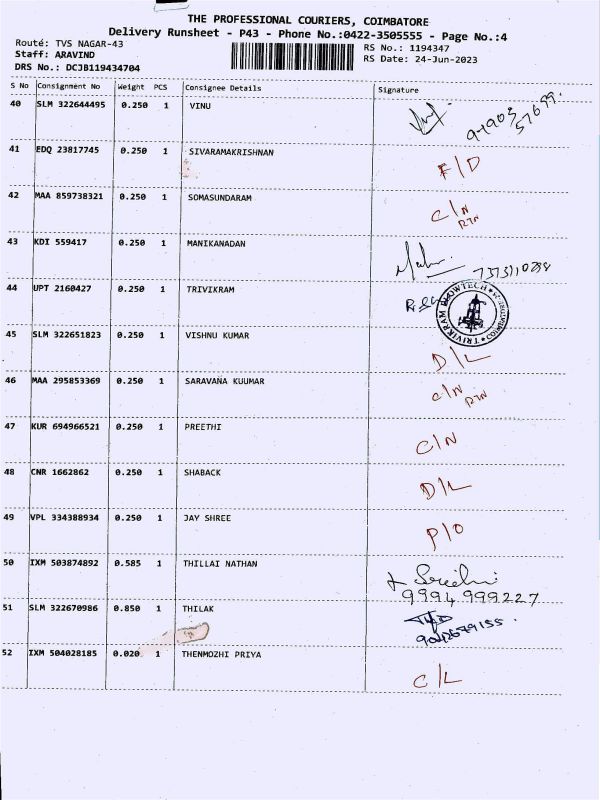 THE PROFESSIONAL COURIERS, COIMBATORE
Delivery Runsheet - P43 - Phone No.:0422-3505555 - Page No.:4
Route: TVS NAGAR-43 RS No.: 1194347
Staff: ARAVIND RS Date: 24-Jun-2023
DRS No.: DCJB119434704
S No Consignment No Weight PCS Consignee Details Signature
40 SLM 322644495 0.250 1 VINU
41 EDQ 23817745 0.250 1 SIVARAMAKRISHNAN F/D
42 MAA 859738321 0.250 1 SOMASUNDARAM C/N
RTN
43 KDI 559417 0.250 1 MANIKANADAN
44 UPT 2160427 0.250 1 TRIVIKRAM
TRIVIKRAM FLOWTECH COIMBATORE
45 SLM 322651823 0.250 1 VISHNU KUMAR D/L
46 MAA 295853369 0.250 1 SARAVANA KUUMAR C/N RTN
47 KUR 694966521 0.250 1 PREETHI C/N
48 CNR 1662862 0.250 1 SHABACK D/L
49 VPL 334388934 0.250 1 JAY SHREE P/O
50 IXM 503874892 0.585 1 THILLAI NATHAN
9994999227
51 SLM 322670986 0.850 1 THILAK
9042679155
52 IXM 504028185 0.020 1 THENMOZHI PRIYA C/L